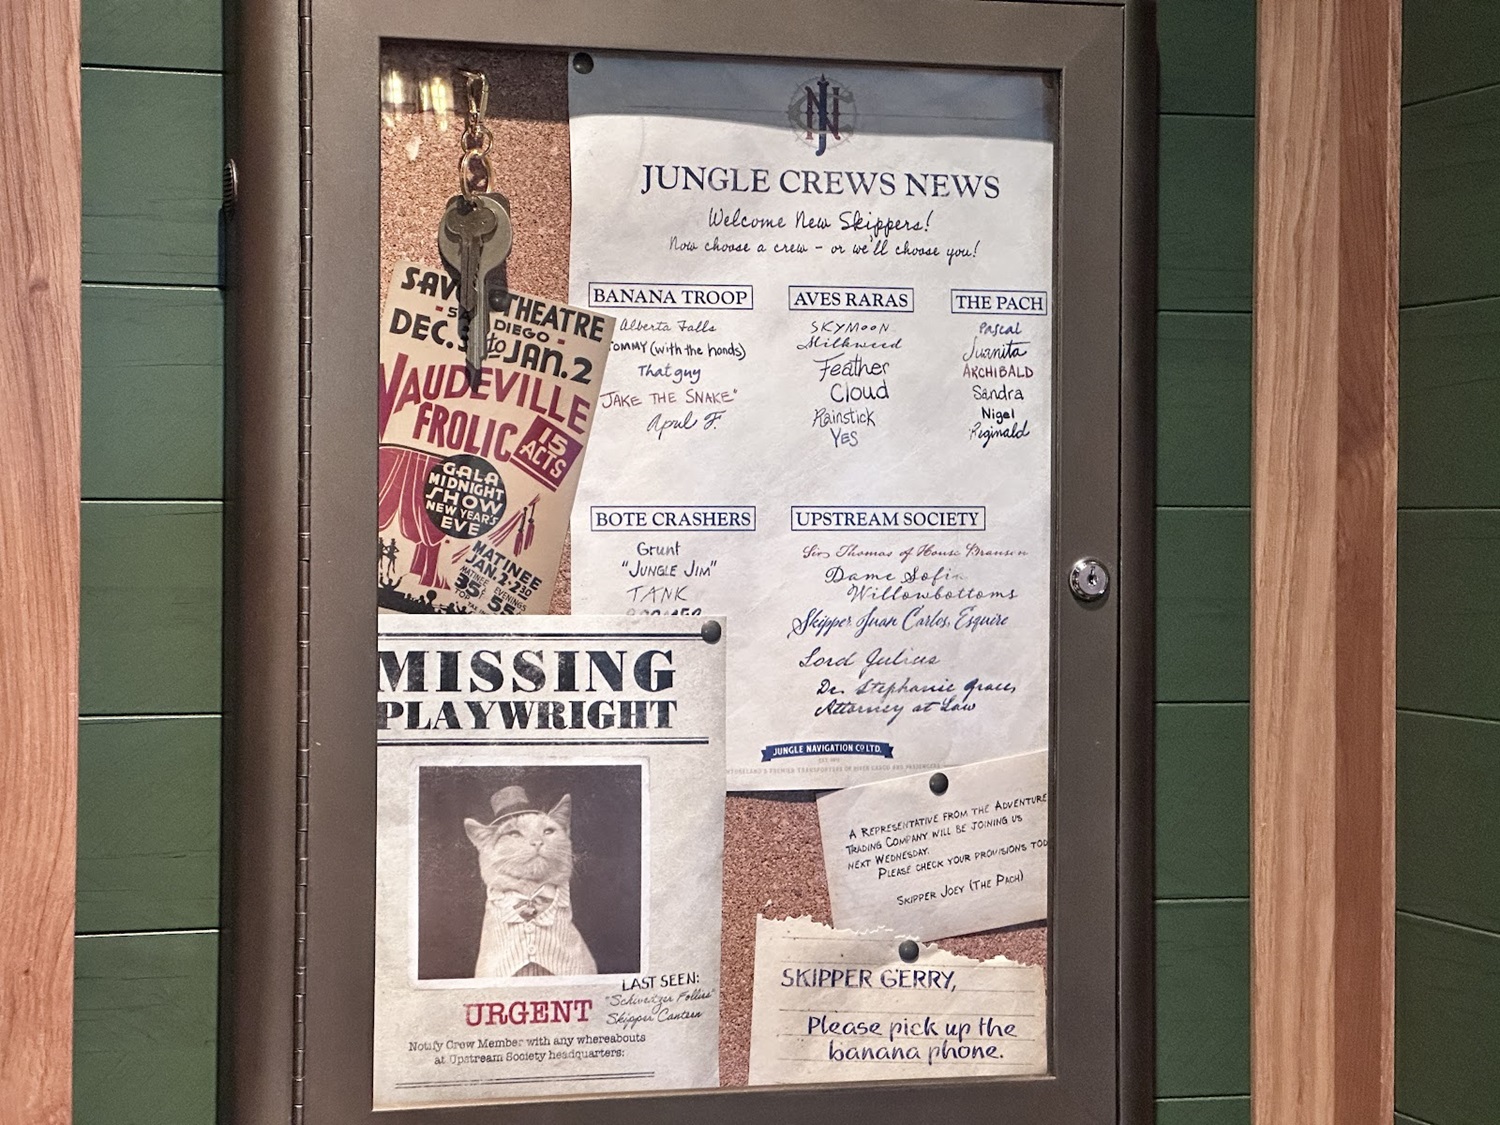 JUNGLE CREWS NEWS
Welcome New Skippers!
Now choose a crew - or we'll choose you!
BANANA TROOP
Alberta Falls
TOMMY (with the hands)
That guy
"JAKE THE SNAKE"
April F.
AVES RARAS
SKYMOON
Milkweed
Feather
Cloud
Rainstick
YES
THE PACH
Pascal
Juanita
ARCHIBALD
Sandra
Nigel
Reginald
BOTE CRASHERS
Grunt
"JUNGLE JIM"
TANK
UPSTREAM SOCIETY
Sir Thomas of House Bransen
Dame Sofia
Willowbottoms
Skipper Juan Carlos, Esquire
Lord Julius
Dr. Stephanie Graces,
Attorney at Law
JUNGLE NAVIGATION CO LTD.
PREMIER TRANSPORTERS OF RIVER CARGO AND PASSENGERS
SAV THEATRE
DIEGO
DEC. to JAN. 2
VAUDEVILLE
FROLIC
15
ACTS
GALA
MIDNIGHT
SHOW
NEW YEAR'S
EVE
MATINEE
JAN. 2 - 2:30
MATINEE EVENINGS
35¢ 55
MISSING
PLAYWRIGHT
LAST SEEN:
"Schweitzer Follies"
Skipper Canteen
URGENT
Notify Crew Member with any whereabouts
at Upstream Society headquarters:
A REPRESENTATIVE FROM THE ADVENTURE
TRADING COMPANY WILL BE JOINING US
NEXT WEDNESDAY.
PLEASE CHECK YOUR PROVISIONS TOD
SKIPPER JOEY (THE PACH)
SKIPPER GERRY,
Please pick up the
banana phone.